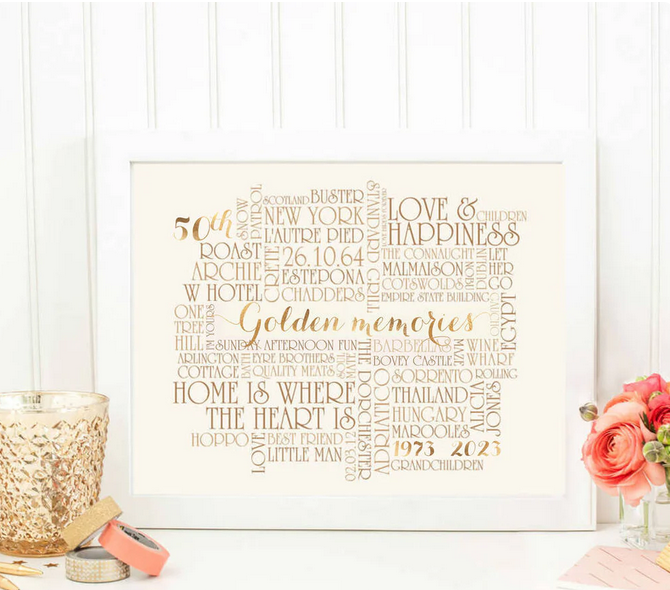 50th
SNOW
PATROL
SCOTLAND BUSTER
NEW YORK
L'AUTRE PIED
26.10.64
ESTEPONA
CHADDERS
CRETE
STANDARD GRILL
LOVE &
CHILDREN
HAPPINESS
THE CONNAUGHT
MALMAISON
COTSWOLDS
EMPIRE STATE BUILDING
DUBLIN
LET
HER
GO
ROAST
ARCHIE
W HOTEL
Golden memories
EGYPT
ONE
TREE
HILL
I'M YOURS
SUNDAY AFTERNOON FUN
ARLINGTON
COTTAGE
BATH
EYRE BROTHERS
QUALITY MEATS
SOUL
MATE
THE DORCHESTER
BARBELLAS
BOVEY CASTLE
MAZE
WINE
WHARF
SORRENTO
ROLLING
HOME IS WHERE
THE HEART IS
COVIVIRDAV
THAILAND
HUNGARY
MAROOLES
ALICIA
JONES
HOPPO
LOVE
BEST FRIEND
LITTLE MAN
02.03.12
1973 2023
GRANDCHILDREN